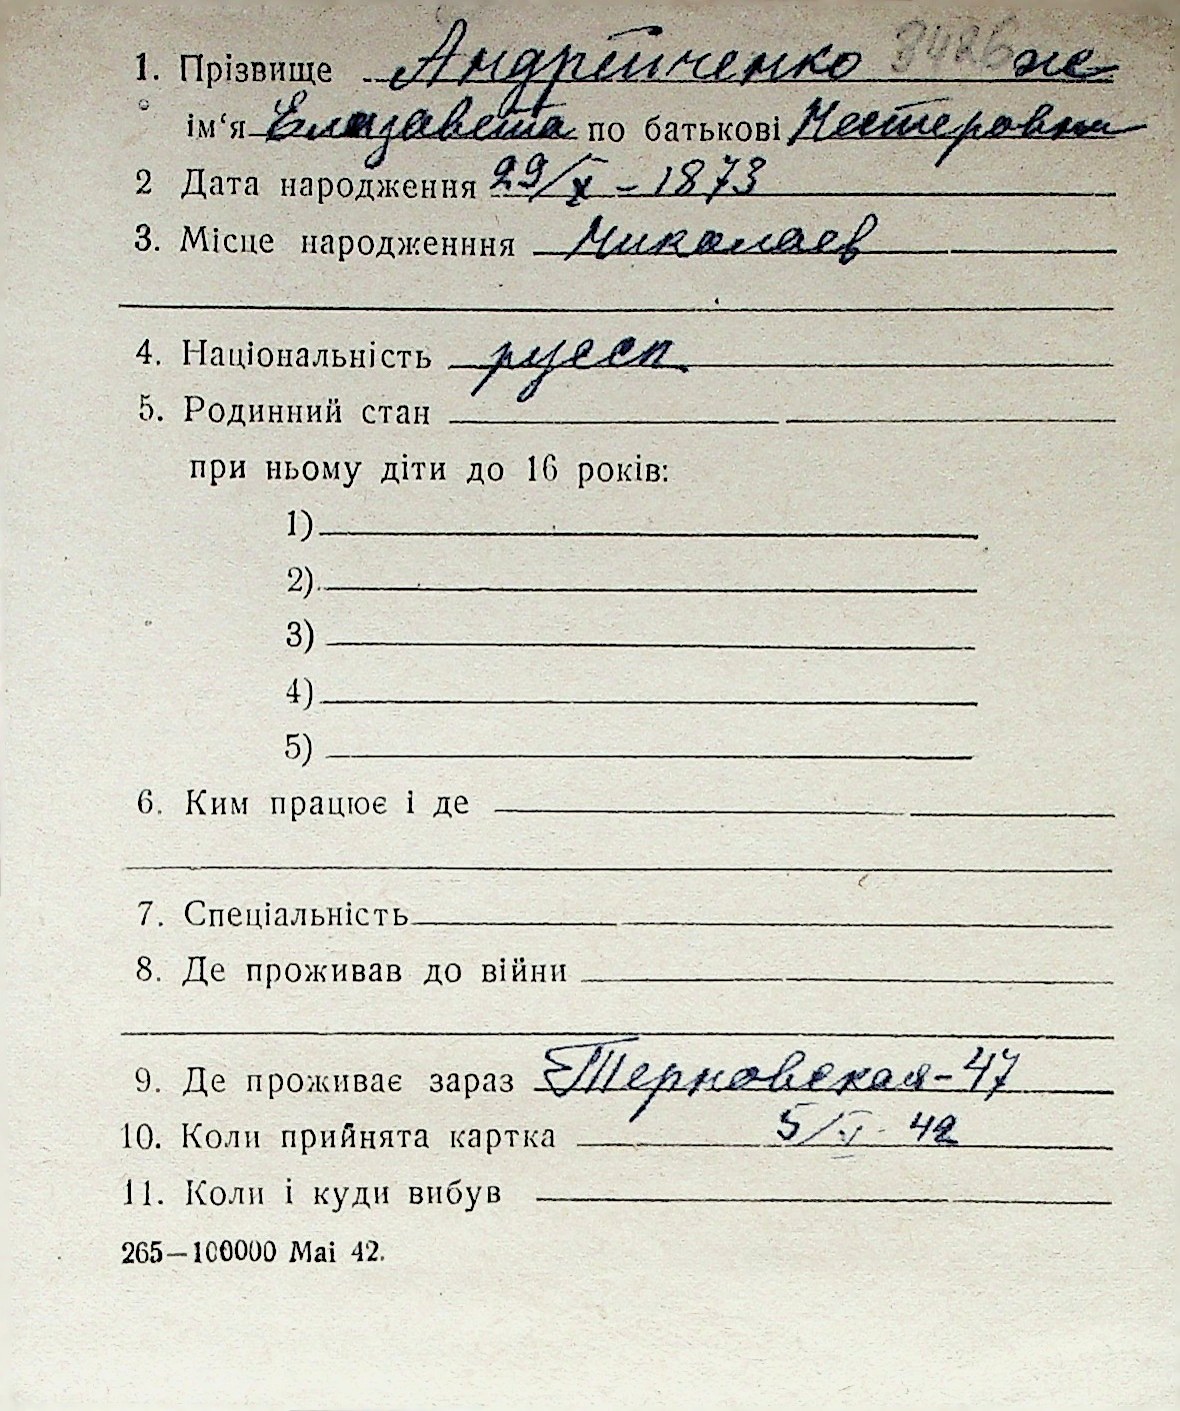 1. Прізвище Андрейченко 3426 же
ім‘я Елизавета по батькові Нестеровна
2 Дата народження 29/X – 1873
3. Місце народженння Николаев
4. Національність русск.
5. Родинний стан
при ньому діти до 16 років:
1)
2)
3)
4)
5)
6. Ким працює і де
7. Спеціальність
8. Де проживав до війни
9. Де проживає зараз Терновская-47
10. Коли прийнята картка 5/V- 42
11. Коли і куди вибув
265—100000 Mai 42.